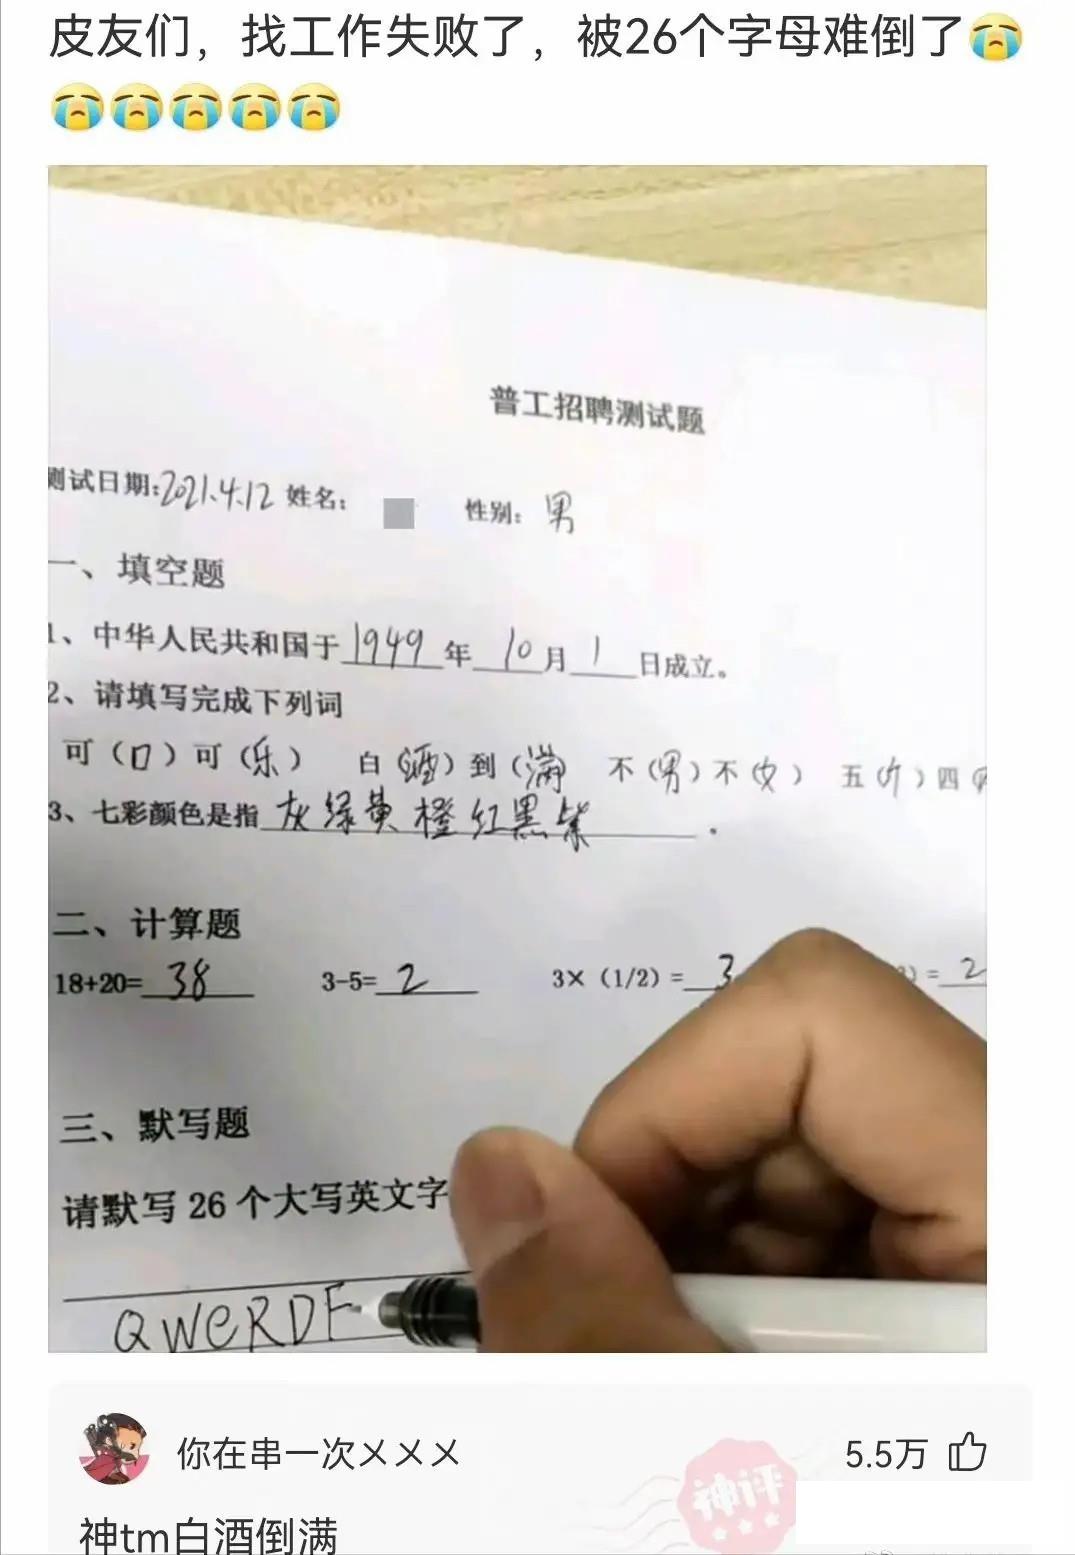 皮友们，找工作失败了，被26个字母难倒了😭
😭😭😭😭😭
普工招聘测试题
测试日期:2021.4.12 姓名: 性别: 男
一、填空题
1、中华人民共和国于1949年10月1日成立。
2、请填写完成下列词
可（口）可（乐） 白（酒）到（满） 不（男）不（女） 五（斤）四
3、七彩颜色是指灰绿黄橙红黑紫。
二、计算题
18+20=38 3-5=2 3×（1/2）=3 ）=2
三、默写题
请默写26个大写英文字
QWeRDF
你在串一次㐅㐅㐅 5.5万
神评
神tm白酒倒满